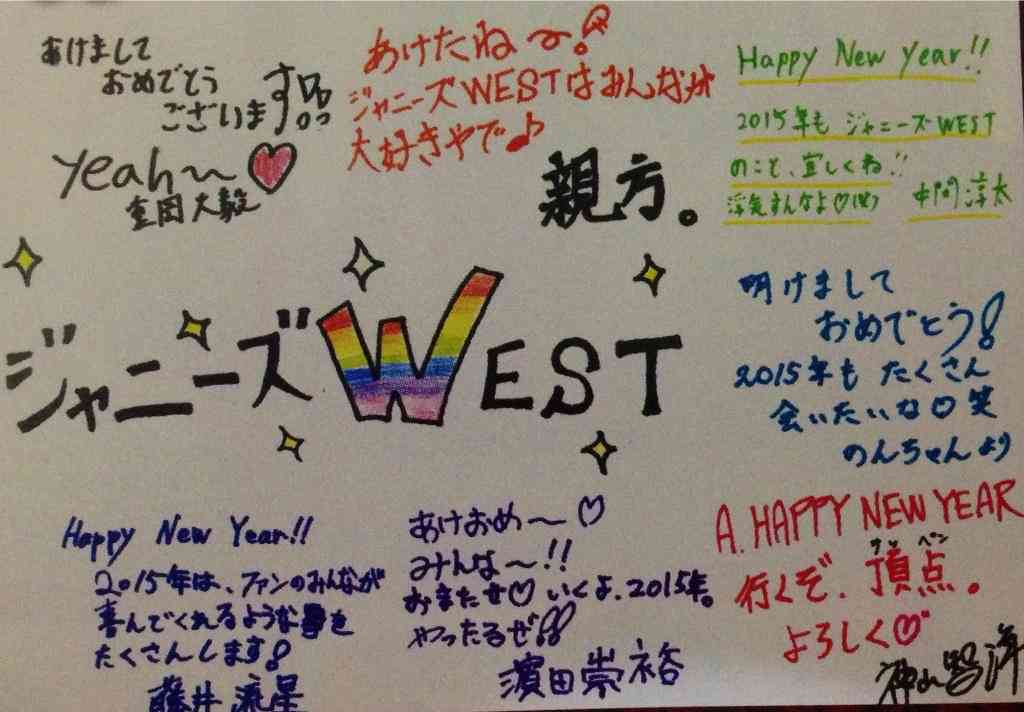 あけまして
おめでとう
ございます
yeah〜♡
重岡大毅
あけたね〜。
ジャニーズWESTはみんなが
大好きやで♪
親方。
Happy New Year!!
2015年も ジャニーズWEST
のこと、宜しくね!!
浮気すんなよ♡(笑)
中間淳太
ジャニーズWEST
明けまして
おめでとう!
2015年も たくさん
会いたいな♡笑
のんちゃんより
Happy New Year!!
2015年は、ファンのみんなが
喜んでくれるような事を
たくさんします!
藤井流星
あけおめ〜♡
みんな〜!!
おまたせ♡いくよ、2015年。
やったるぜ!!
濵田崇裕
A. HAPPY NEW YEAR
行くぞ、頂点。
テッペン
よろしく♡
神山智洋